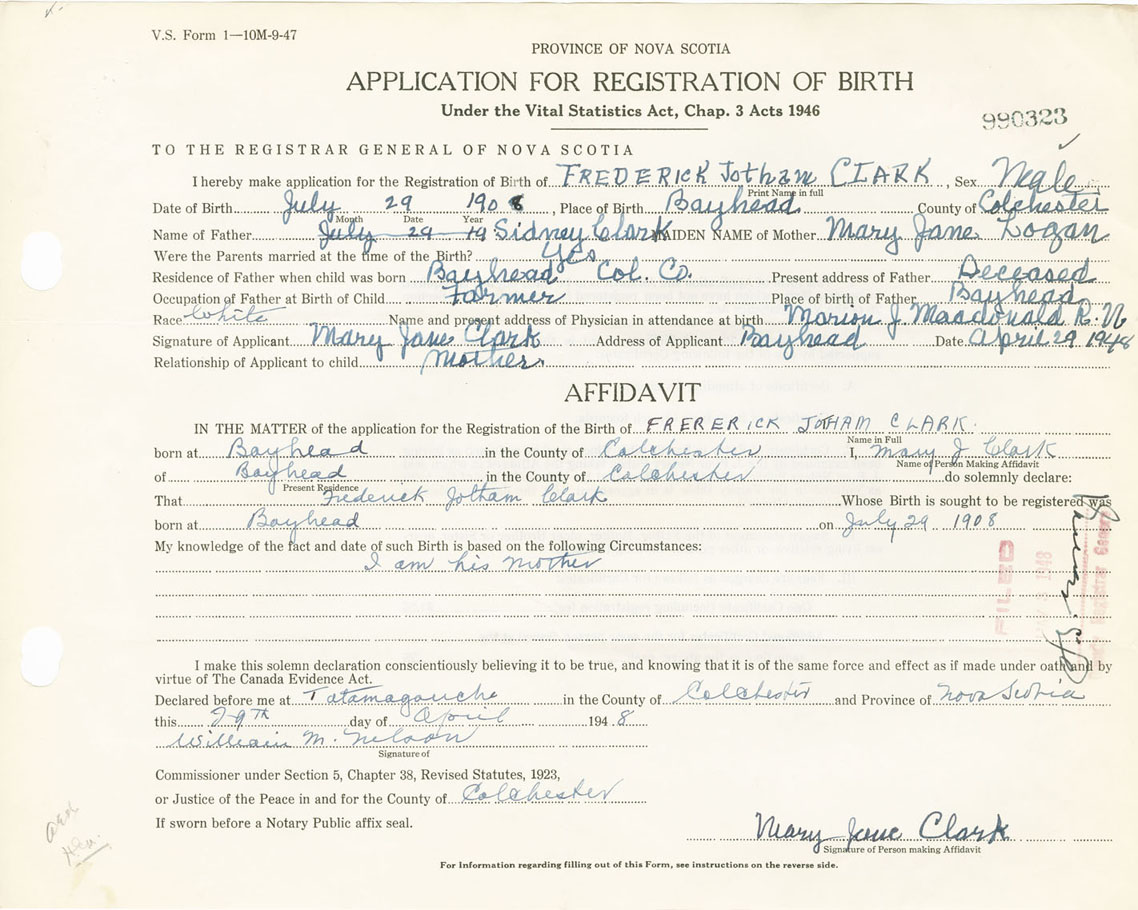 V.S. Form 1—10M-9-47
PROVINCE OF NOVA SCOTIA
APPLICATION FOR REGISTRATION OF BIRTH
Under the Vital Statistics Act, Chap. 3 Acts 1946
990323
TO THE REGISTRAR GENERAL OF NOVA SCOTIA
I hereby make application for the Registration of Birth of FREDERICK Jotham CLARK, Sex Male
Print Name in full
Date of Birth July 29 1908, Place of Birth Bayhead County of Colchester
Month Date Year
Name of Father July 29 19 Sidney Clark MAIDEN NAME of Mother Mary Jane Logan
Were the Parents married at the time of the Birth? Yes
Residence of Father when child was born Bayhead Col. Co. Present address of Father Deceased
Occupation of Father at Birth of Child Farmer Place of birth of Father Bayhead
Race White Name and present address of Physician in attendance at birth Marion J. Maadonald R. N
Signature of Applicant Mary Jane Clark Address of Applicant Bayhead Date April 29 1948
Relationship of Applicant to child Mother
AFFIDAVIT
IN THE MATTER of the application for the Registration of the Birth of FRERERICK JOTHAM CLARK.
Name in Full
born at Bayhead in the County of Colchester I, Mary J Clark
Name of Person Making Affidavit
of Bayhead in the County of Colchester do solemnly declare:
Present Residence
That Frederick Jotham Clark Whose Birth is sought to be registered was
born at Bayhead on July 29 1908
My knowledge of the fact and date of such Birth is based on the following Circumstances:
I am his mother
FILED
Registrar General
I make this solemn declaration conscientiously believing it to be true, and knowing that it is of the same force and effect as if made under oath and by
virtue of The Canada Evidence Act.
Declared before me at Tatamagouche in the County of Colchester and Province of Nova Scotia
this 29TH day of April 1948
William M. Nelson
Signature of
Commissioner under Section 5, Chapter 38, Revised Statutes, 1923,
or Justice of the Peace in and for the County of Colchester
If sworn before a Notary Public affix seal.
Mary Jane Clark
Signature of Person making Affidavit
For Information regarding filling out of this Form, see instructions on the reverse side.